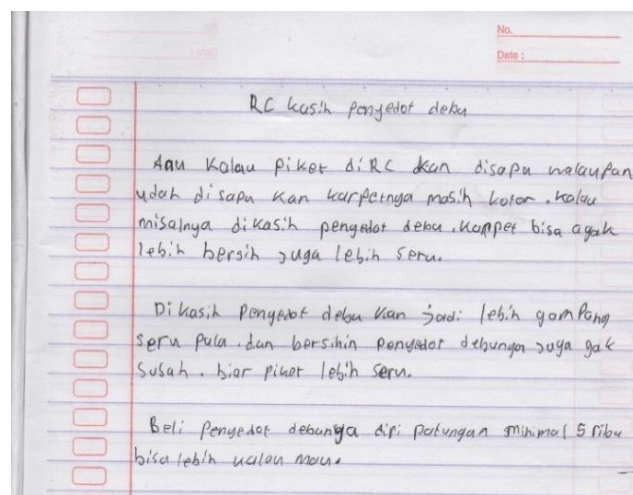 No.
Date :
RC kasih penyedot debu
Aku Kalau Piket diRC kan disapu walaupun
udah disapu kan karpetnya masih kotor. kalau
misalnya dikasih penyedot debu. karpet bisa agak
lebih bersih juga lebih seru.
Dikasih Penyedot debu kan jadi lebih gampang
seru pula. dan bersihin penyedot debunga juga gak
susah. biar piket lebih seru.
Beli Penyedot debunya dipi patungan minimal 5 ribu
bisa lebih kalau mau.